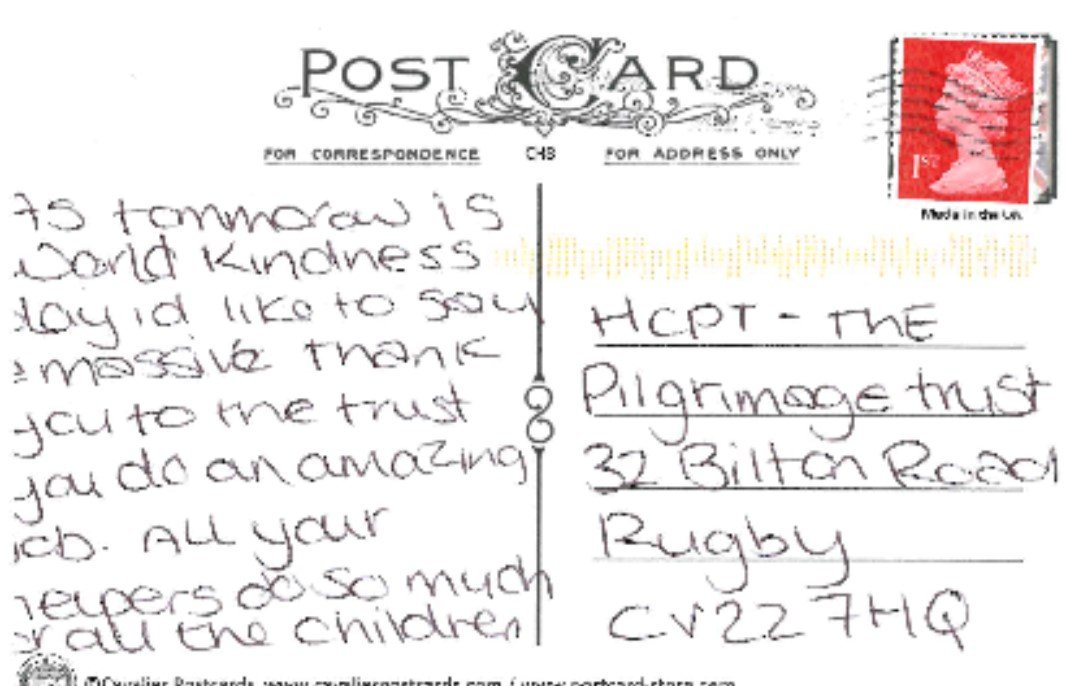 POST CARD
FOR CORRESPONDENCE CHB FOR ADDRESS ONLY
1ST
Made in the UK
As tommorow is
World Kindness
day id like to say
a massive thank
you to the trust
you do an amazing
job. ALL your
helpers do so much
for all the children
HCPT - THE
Pilgrimage trust
32 Bilton Road
Rugby
CV22 7HQ
©Cavalier Postcards www.cavalierpostcards.com / www.postcard-store.com